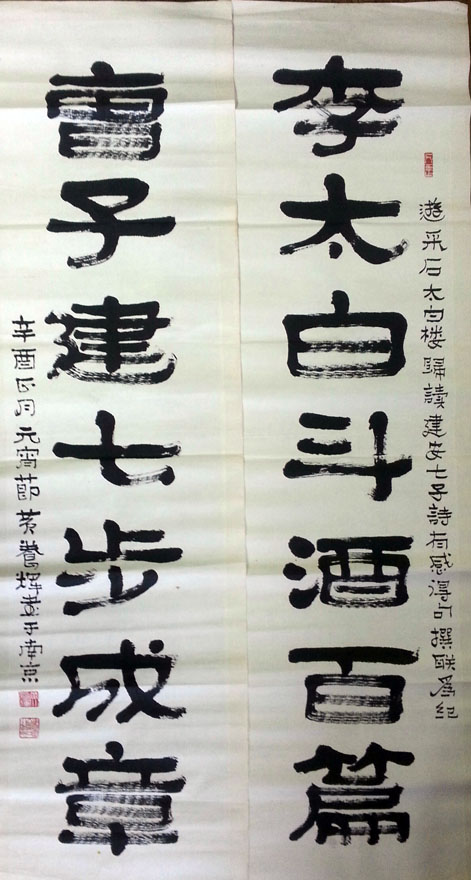 遊采石太白楼歸讀建安七子詩有感得句撰联爲纪
李太白斗酒百篇
曹子建七步成章
辛酉正月元宵節黄養輝書于南京